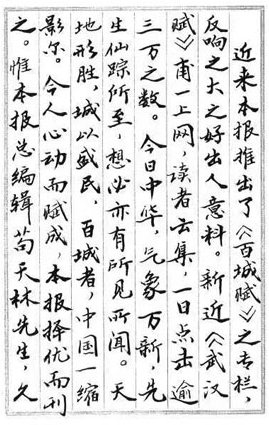 近来本报推出了《百城赋》之专栏，
反响之大之好出人意料。新近《武汉
赋》甫一上网，读者云集，一日点击逾
三万之数。今日中华，气象万新，先
生仙踪所至，想必亦有所见所闻。天
地形胜，城以盛民，百城者，中国一缩
影尔。今人心动而赋成，本报择优而刊
之。惟本报总编辑苟天林先生，久